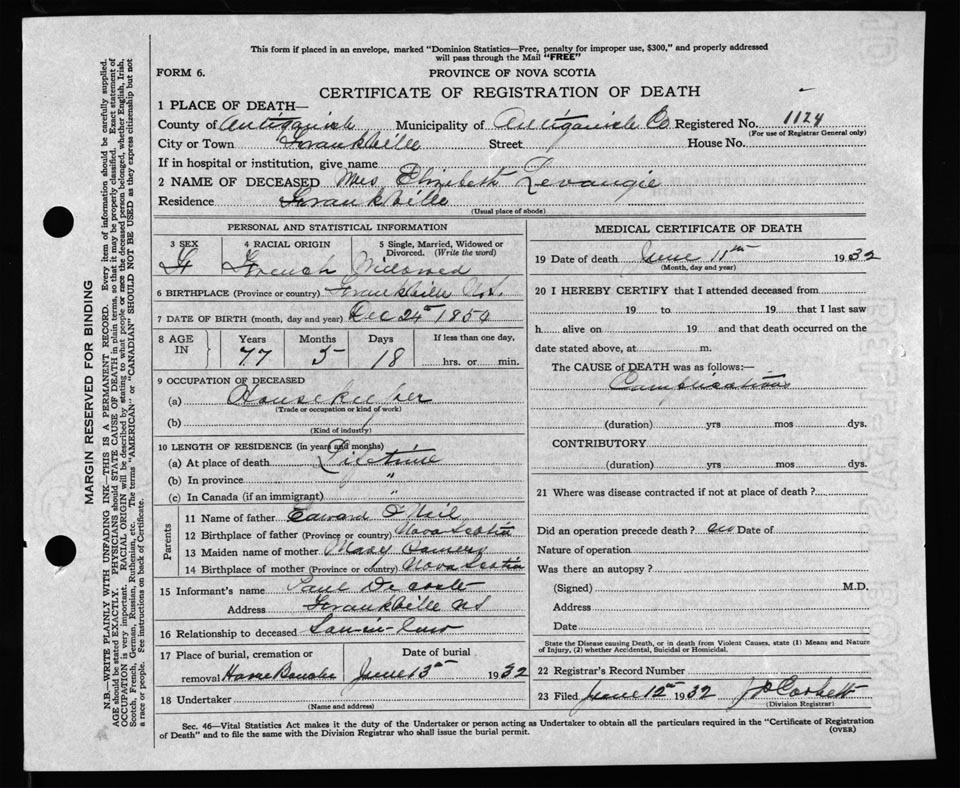 This form if placed in an envelope, marked "Dominion Statistics—Free, penalty for improper use, $300," and properly addressed
will pass through the Mail "FREE"
FORM 6.
PROVINCE OF NOVA SCOTIA
CERTIFICATE OF REGISTRATION OF DEATH
1 PLACE OF DEATH—
County of Antigonish Municipality of Antigonish Co Registered No. 1124
(For use of Registrar General only)
City or Town Frankville Street House No.
If in hospital or institution, give name
2 NAME OF DECEASED Mrs Elizibeth Levangie
Residence Frankville
(Usual place of abode)
PERSONAL AND STATISTICAL INFORMATION
3 SEX 4 RACIAL ORIGIN 5 Single, Married, Widowed or
Divorced. (Write the word)
F French Widowed
6 BIRTHPLACE (Province or country) Frankville N.S.
7 DATE OF BIRTH (month, day and year) Dec 24th 1854
8 AGE IN Years Months Days If less than one day,
77 5 18 hrs. or min.
9 OCCUPATION OF DECEASED
(a) Housekeeper
(Trade or occupation or kind of work)
(b)
(Kind of industry)
10 LENGTH OF RESIDENCE (in years and months)
(a) At place of death Lifetime
(b) In province "
(c) In Canada (if an immigrant) "
Parents
11 Name of father Edward O'Neil
12 Birthplace of father (Province or country) Nova Scotia
13 Maiden name of mother Mary
14 Birthplace of mother (Province or country) Nova Scotia
15 Informant's name Paul Decoste
Address Frankville NS
16 Relationship to deceased Son-in-law
17 Place of burial, cremation or Date of burial
removal Havre Boucher June 13th 1932
18 Undertaker
(Name and address)
MEDICAL CERTIFICATE OF DEATH
19 Date of death June 11th 1932
(Month, day and year)
20 I HEREBY CERTIFY that I attended deceased from
19 to 19 that I last saw
h alive on 19 and that death occurred on the
date stated above, at m.
The CAUSE of DEATH was as follows:—
Complications
(duration) yrs mos dys.
CONTRIBUTORY
(duration) yrs mos dys.
21 Where was disease contracted if not at place of death?
Did an operation precede death? no Date of
Nature of operation
Was there an autopsy?
(Signed) M.D.
Address
Date
State the Disease causing Death, or in death from Violent Causes, state (1) Means and Nature
of Injury, (2) whether Accidental, Suicidal or Homicidal.
22 Registrar's Record Number
23 Filed June 12th 1932 Corbett
(Division Registrar)
Sec. 46—Vital Statistics Act makes it the duty of the Undertaker or person acting as Undertaker to obtain all the particulars required in the "Certificate of Registration
of Death" and to file the same with the Division Registrar who shall issue the burial permit.
(OVER)
MARGIN RESERVED FOR BINDING
N.B.—WRITE PLAINLY WITH UNFADING INK—THIS IS A PERMANENT RECORD. Every item of information should be carefully supplied.
AGE should be stated EXACTLY. PHYSICIANS should STATE CAUSE OF DEATH in plain terms, so that it may be properly classified. Exact statement of
OCCUPATION is very important. RACIAL ORIGIN will be described by stating to what people or race the deceased person belonged, whether English, Irish,
Scotch, French, German, Russian, Ruthenian, etc. The terms "AMERICAN" or "CANADIAN" SHOULD NOT BE USED as they express citizenship but not
a race or people. See instructions on back of Certificate.